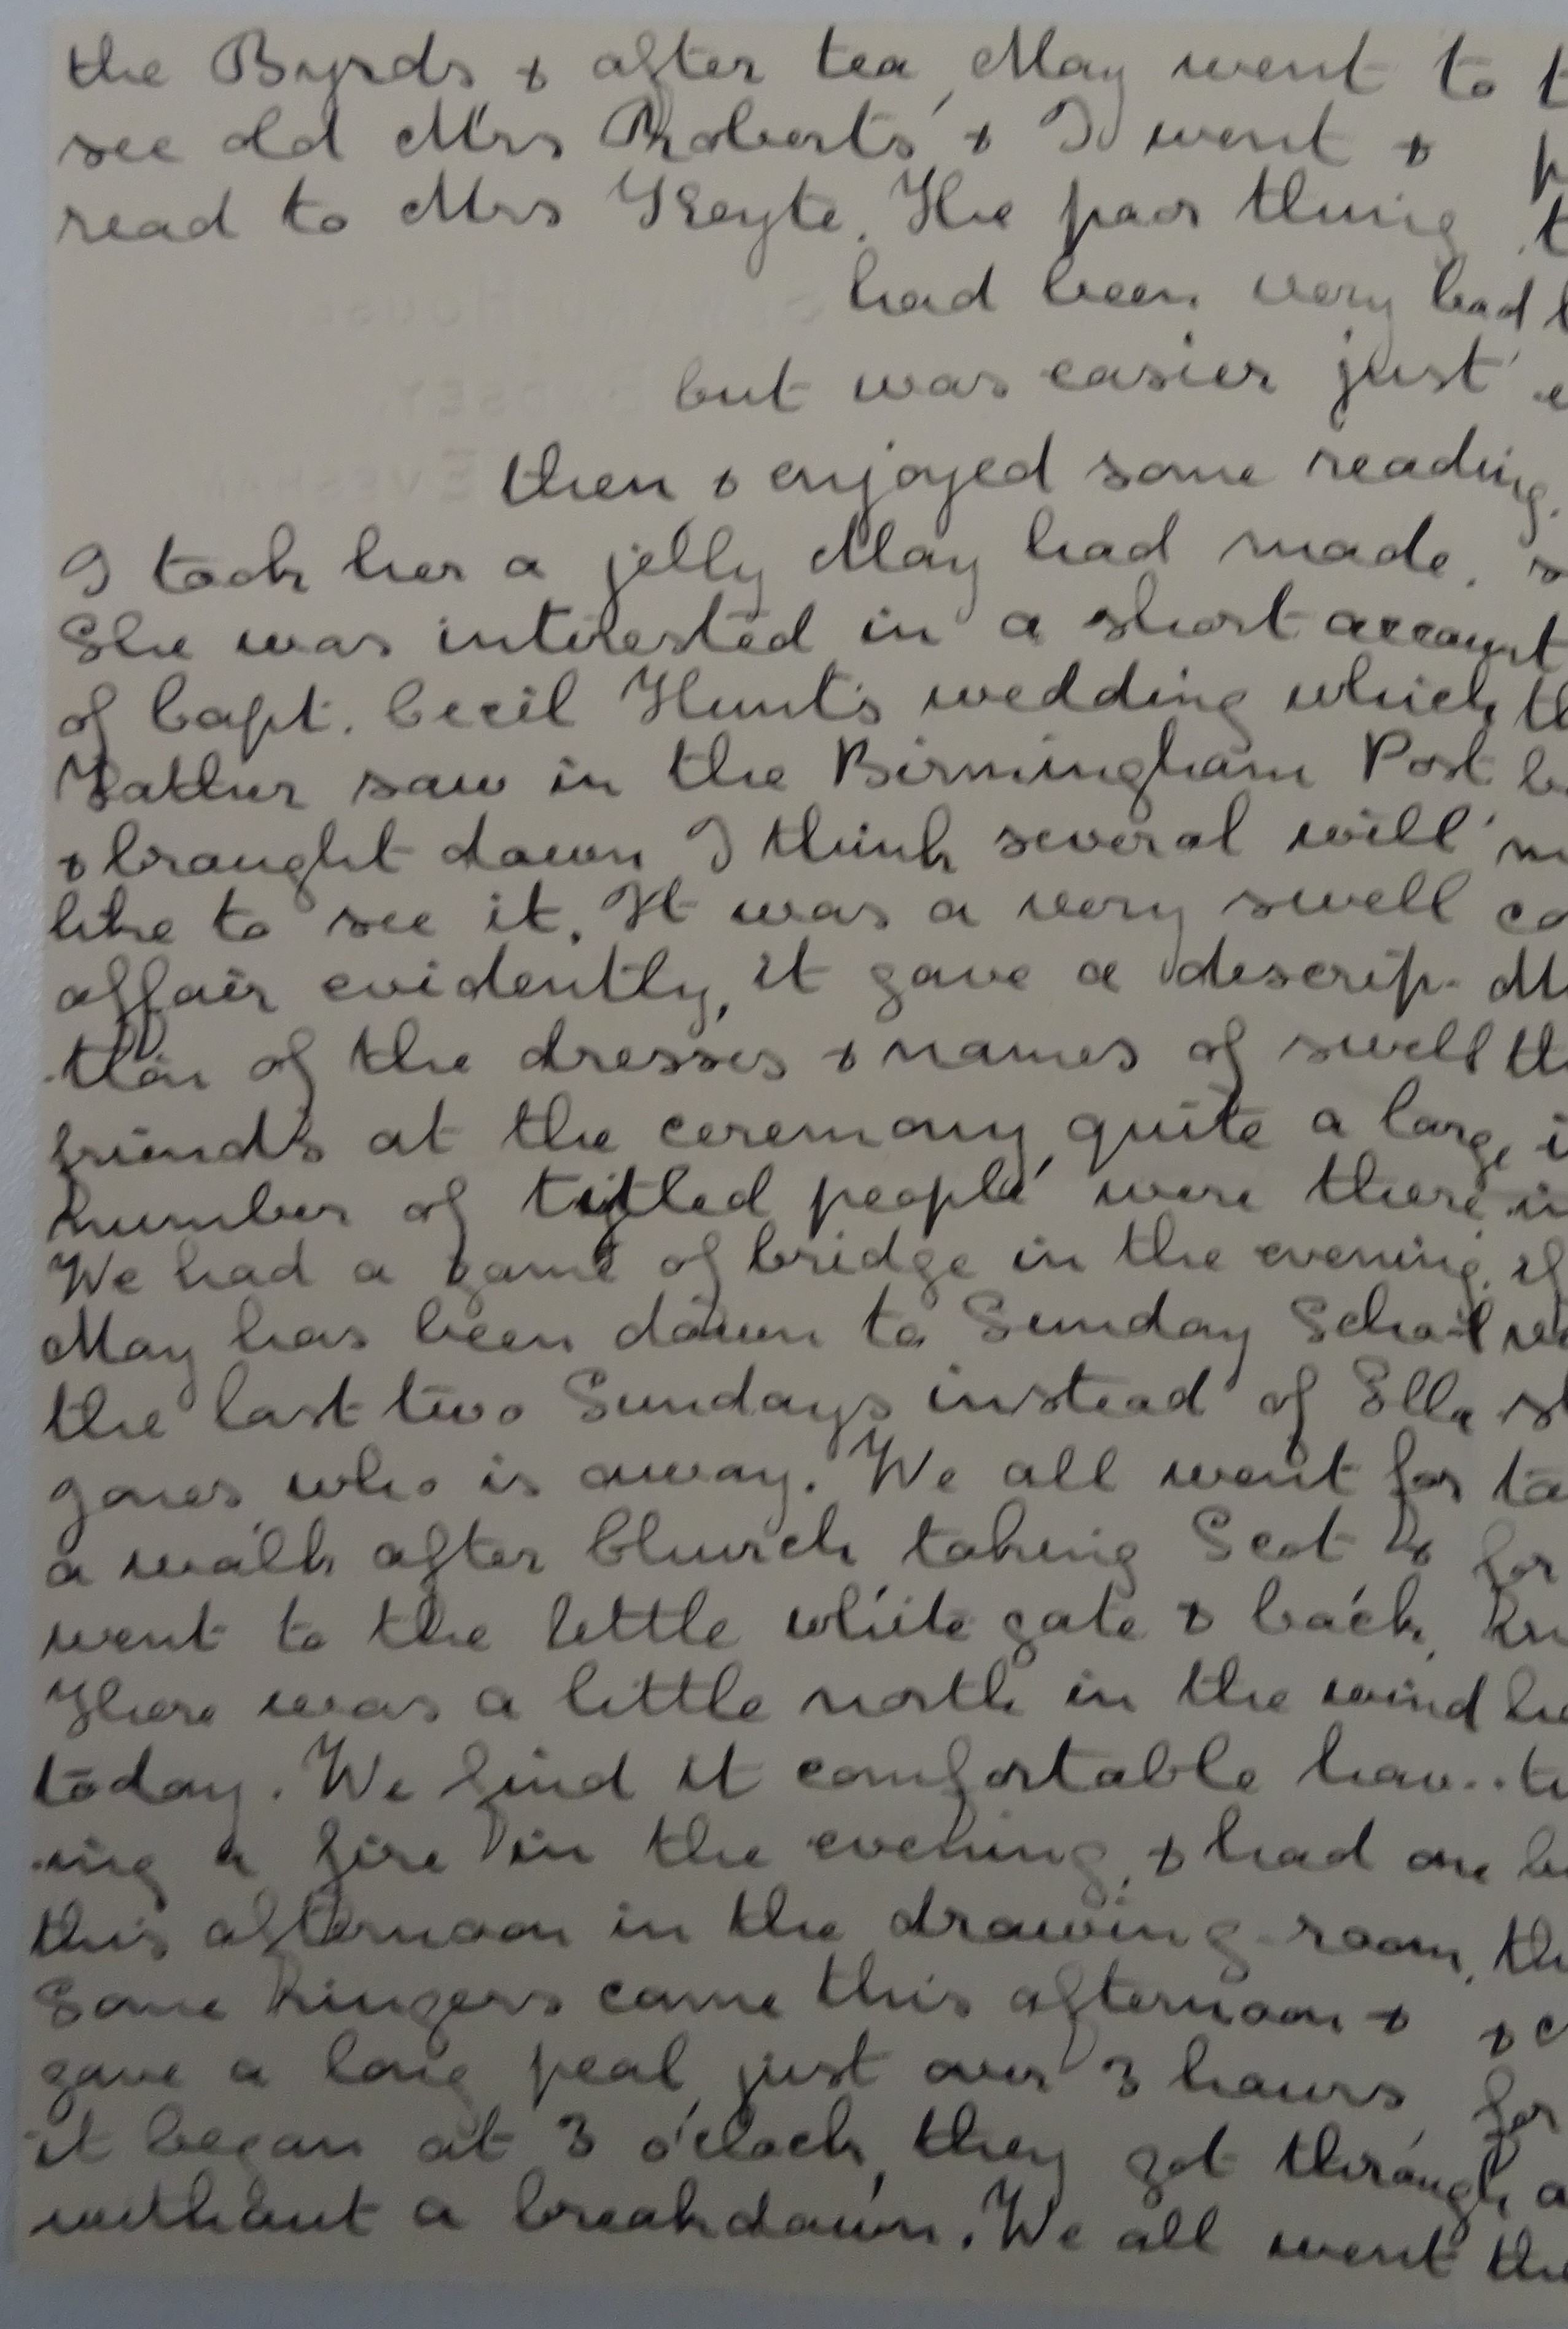 the Byrds & after tea, May went to t
see old Mrs Roberts & I went & p
read to Mrs Keyte. The poor thing t
had been very bad b
but was easier just e
then & enjoyed some reading.
I took her a jelly May had made. s
She was interested in a short account
of Capt. Cecil Hunt's wedding which th
Father saw in the Birmingham Post b
& brought down I think several will m
like to see it. It was a very swell co
affair evidently, it gave a descrip- M
-tion of the dresses & names of swell th
friends at the ceremony, quite a large i
number of titled people were there in
We had a game of bridge in the evening. if
May has been down to Sunday School
the last two Sundays instead of Ella st
Jones, who is away. We all went for to
a walk after Church taking Scot & for
went to the little white gate & back, kn
There was a little north in the wind ho
today. We find it comfortable hav- to
-ing a fire in the evening, & had one b
this afternoon in the drawing-room, th
Some Ringers came this afternoon & & c
gave a long peal, just over 3 hours, for
it began at 3 o'clock, they got through a
without a breakdown. We all went the